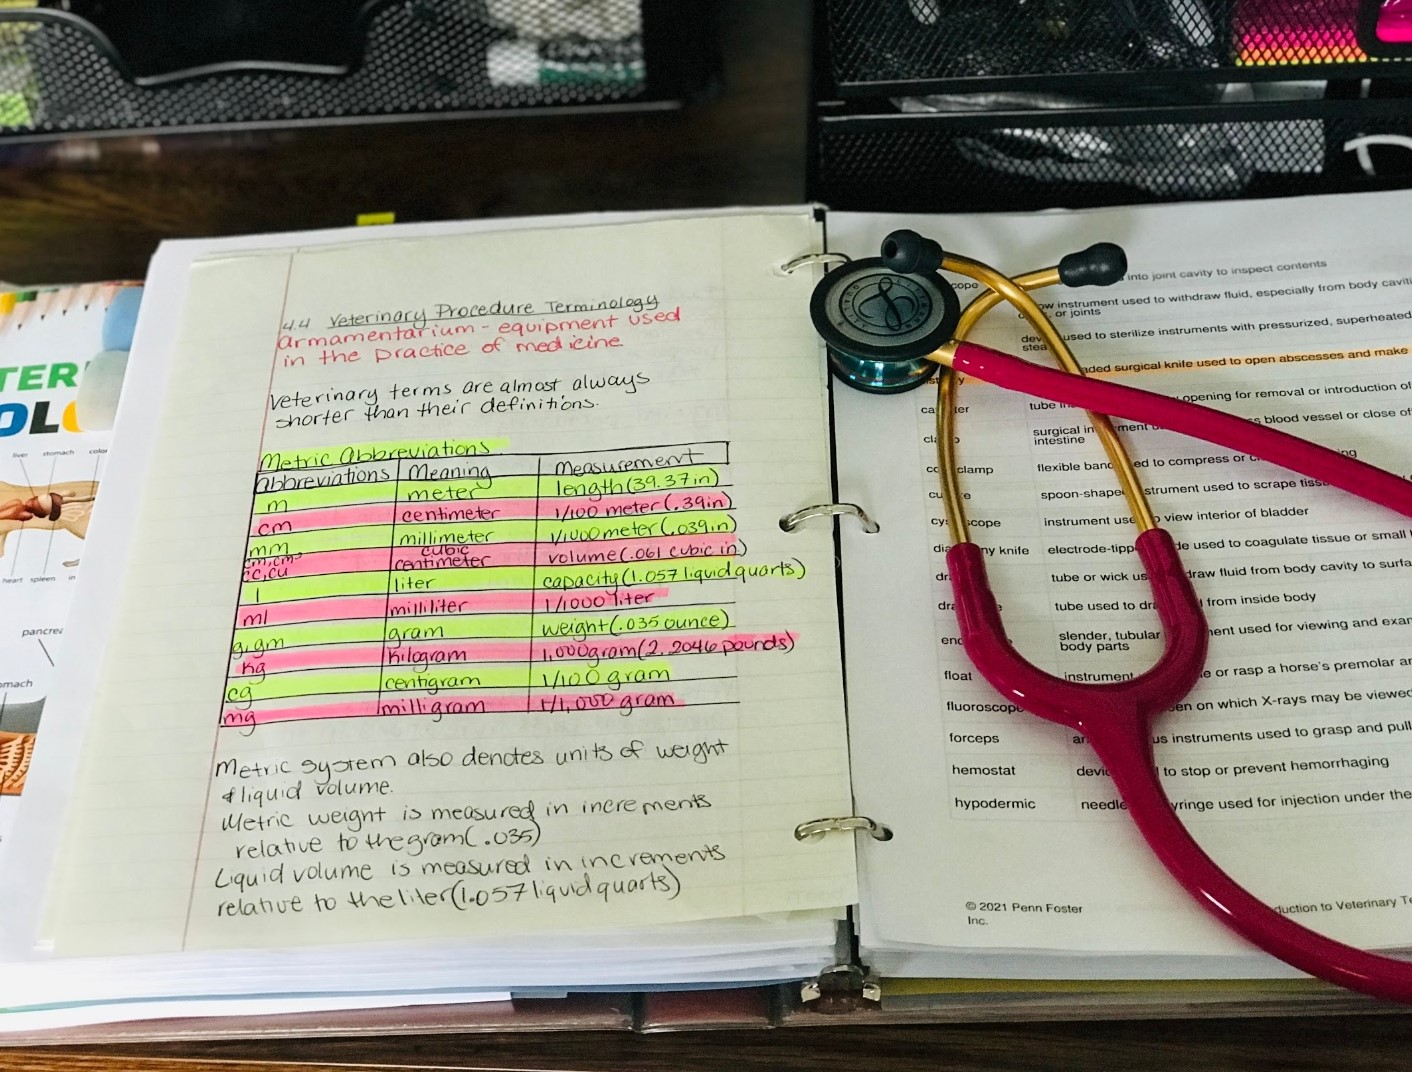 TER
OLO
liver stomach colo
heart spleen in
4.4 Veterinary Procedure Terminology
armamentarium - equipment used
in the practice of medicine
Veterinary terms are almost always
shorter than their definitions.
Metric Abbreviations
abbreviations Meaning Measurement
m meter length (39.37in)
cm centimeter 1/100 meter (.39in)
mm millimeter 1/1,000 meter (.039in)
cc, cu cubic centimeter volume (.061 cubic in)
l liter capacity (1.057 liquid quarts)
ml milliliter 1/1000 liter
g, gm gram weight (.035 ounce)
kg kilogram 1,000 gram (2.2046 pounds)
cg centigram 1/100 gram
mg milligram 1/1,000 gram
Metric system also denotes units of weight
& liquid volume.
Metric weight is measured in increments
relative to the gram (.035)
Liquid volume is measured in increments
relative to the liter (1.057 liquid quarts)
cope into joint cavity to inspect contents
ow instrument used to withdraw fluid, especially from body caviti
or joints
used to sterilize instruments with pressurized, superheated
stea
ded surgical knife used to open abscesses and make
opening for removal or introduction of
tube
surgical in blood vessel or close of
intestine
clamp flexible band ed to compress or
spoon-shape strument used to scrape tiss
scope instrument use view interior of bladder
ny knife electrode-tipp de used to coagulate tissue or small
tube or wick us draw fluid from body cavity to surfa
tube used to dr from inside body
slender, tubular ment used for viewing and exar
body parts
float instrument e or rasp a horse's premolar ar
fluoroscope en on which X-rays may be viewed
forceps us instruments used to grasp and pull
hemostat to stop or prevent hemorrhaging
hypodermic needle yringe used for injection under the
© 2021 Penn Foster
Inc.
duction to Veterinary Te